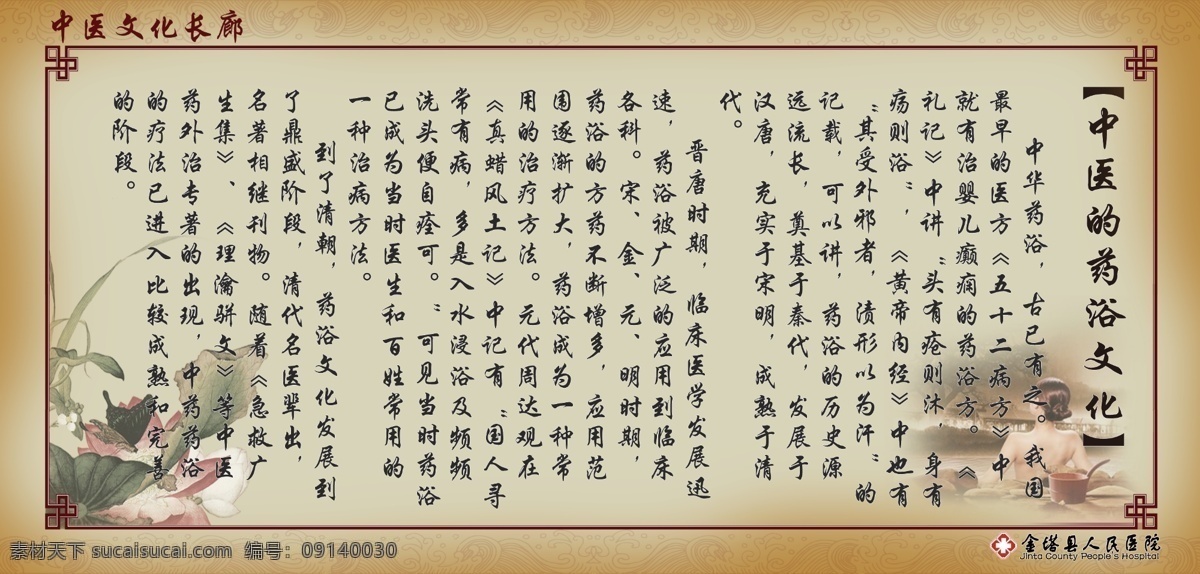 中医文化长廊
【中医的药浴文化】
中华药浴，古已有之。我国
最早的医方《五十二病方》中
就有治婴儿癫痫的药浴方。《
礼记》中讲“头有疮则沐，身有
疡则浴”，《黄帝内经》中也有
“其受外邪者，渍形以为汗”的
记载，可以讲，药浴的历史源
远流长，奠基于秦代，发展于
汉唐，充实于宋明，成熟于清
代。
晋唐时期，临床医学发展迅
速，药浴被广泛的应用到临床
各科。宋、金、元、明时期，
药浴的方药不断增多，应用范
围逐渐扩大，药浴成为一种常
用的治疗方法。元代周达观在
《真蜡风土记》中记有“国人寻
常有病，多是入水浸浴及频频
洗头便自痊可。”可见当时药浴
已成为当时医生和百姓常用的
一种治病方法。
到了清朝，药浴文化发展到
了鼎盛阶段，清代名医辈出，
名著相继刊物。随着《急救广
生集》、《理瀹骈文》等中医
药外治专著的出现，中药药浴
的疗法已进入比较成熟和完善
的阶段。
金塔县人民医院
Jinta County People's Hospital
素材天下 sucaisucai.com 编号：09140030